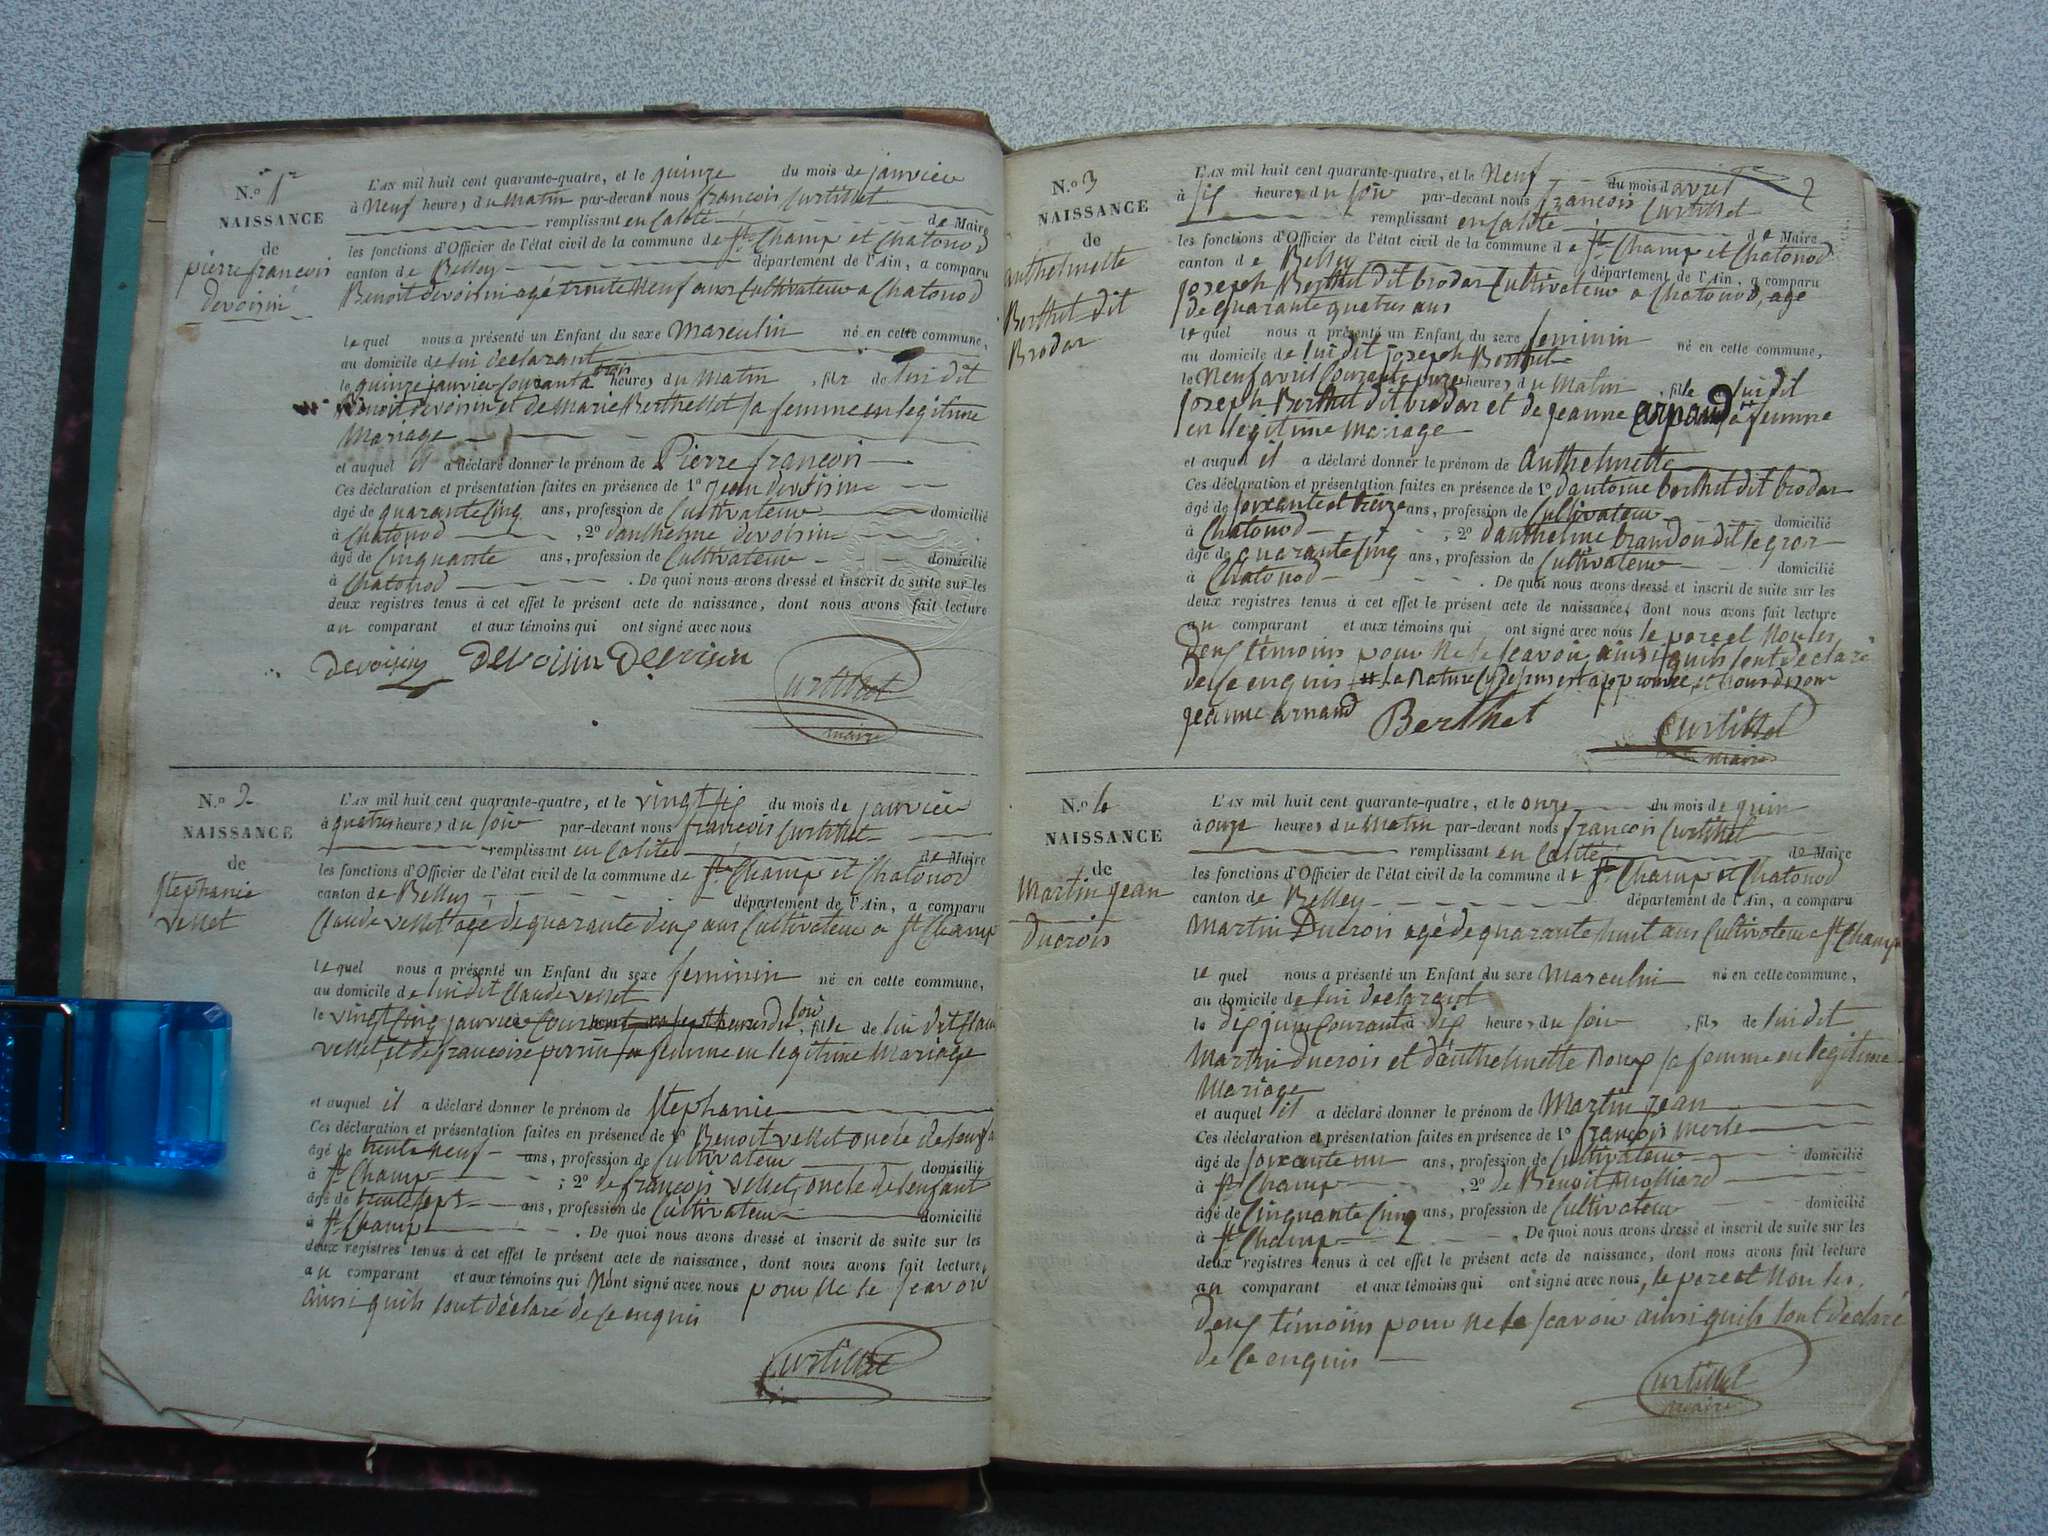 N.º 1er
NAISSANCE
de
pierre françois
devoisin
L'AN mil huit cent quarante-quatre, et le quinze du mois de janvier
à Neuf heures du matin par-devant nous françois Curtillet
remplissant en Calité de Maire
les fonctions d'Officier de l'état civil de la commune de St. Champ et Chatonod
canton de Belley département de l'Ain, a comparu
Benoit devoisin agé trente Neuf ans Cultivateur a Chatonod
le quel nous a présenté un Enfant du sexe Masculin né en cette commune,
au domicile de lui déclarant
le quinze janvier Courant à trois heures du Matin, fils de lui dit
Benoit devoisin et de Marie Berthellet sa femme en legitime
Mariage
et auquel il a déclaré donner le prénom de Pierre françois
Ces déclaration et présentation faites en présence de 1º jean devoisin
âgé de quarante Cinq ans, profession de Cultivateur domicilié
à Chatonod, 2º danthelme devoisin
âgé de Cinquante ans, profession de Cultivateur domicilié
à Chatonod. De quoi nous avons dressé et inscrit de suite sur les
deux registres tenus à cet effet le présent acte de naissance, dont nous avons fait lecture
au comparant et aux témoins qui ont signé avec nous
Devoisin Devoisin Devoisin
Curtillet
maire
N.º 2
NAISSANCE
de
Stephanie
vellet
L'AN mil huit cent quarante-quatre, et le vingt six du mois de janvier
à quatres heures du soir par-devant nous françois Curtillet
remplissant en Calité de Maire
les fonctions d'Officier de l'état civil de la commune de St. Champ et Chatonod
canton de Belley département de l'Ain, a comparu
Claude vellet agé de quarante deux ans Cultivateur a St Champ
le quel nous a présenté un Enfant du sexe feminin né en cette commune,
au domicile de lui dit Claude vellet
le vingt Cinq janvier Courant a sept heures du soir, fille de lui dit Claude
vellet, et de francoise perrin sa femme en legitime Mariage
et auquel il a déclaré donner le prénom de Stephanie
Ces déclaration et présentation faites en présence de 1º Benoit vellet oncle de
âgé de trente Neuf ans, profession de Cultivateur domicilié
à St Champ; 2º de françois vellet, oncle de lenfant
âgé de trente sept ans, profession de Cultivateur domicilié
à St. Champ. De quoi nous avons dressé et inscrit de suite sur les
deux registres tenus à cet effet le présent acte de naissance, dont nous avons fait lecture,
au comparant et aux témoins qui N'ont signé avec nous pour ne le scavoir
ainsi quils lont déclaré de ce enquis
Curtillet
2
N.º 3
NAISSANCE
de
anthelmette
Berthet dit
Brodar
L'AN mil huit cent quarante-quatre, et le Neuf du mois d'avril
à six heures du soir par-devant nous françois Curtillet
remplissant en Calité de Maire
les fonctions d'Officier de l'état civil de la commune de St. Champ et Chatonod
canton de Belley département de l'Ain, a comparu
joseph Berthet dit brodar Cultivateur a Chatonod, agé
de quarante quatres ans
le quel nous a présenté un Enfant du sexe feminin né en cette commune,
au domicile de lui dit joseph Berthet
le Neuf avril Courant a onze heures du Matin, fille de lui dit
joseph Berthet dit brodar et de jeanne arnaud sa femme
en legitime Mariage
et auquel il a déclaré donner le prénom de Anthelmette
Ces déclaration et présentation faites en présence de 1º dantoine berthet dit brodar
âgé de soixante et treize ans, profession de Cultivateur domicilié
à Chatonod, 2º danthelme brandon dit le gros
âgé de quarante Cinq ans, profession de Cultivateur domicilié
à Chatonod. De quoi nous avons dressé et inscrit de suite sur les
deux registres tenus à cet effet le présent acte de naissance, dont nous avons fait lecture
au comparant et aux témoins qui ont signé avec nous le pere et Non les
deux témoins pour ne le scavoir ainsi quils lont déclaré
de ce enquis
jeanne arnaud Berthet
Curtillet
maire
N.º 4
NAISSANCE
de
Martin jean
Ducrois
L'AN mil huit cent quarante-quatre, et le onze du mois de juin
à onze heures du Matin par-devant nous françois Curtillet
remplissant en Calité de Maire
les fonctions d'Officier de l'état civil de la commune de St. Champ et Chatonod
canton de Belley département de l'Ain, a comparu
Martin Ducrois agé de quarante huit ans Cultivateur a St Champ
le quel nous a présenté un Enfant du sexe Masculin né en cette commune,
au domicile de lui declarant
le dix juin Courant a dix heures du soir, fils de lui dit
Martin ducrois et danthelmette Roux sa femme en legitime
Mariage
et auquel il a déclaré donner le prénom de Martin jean
Ces déclaration et présentation faites en présence de 1º françois merle
âgé de soixante un ans, profession de Cultivateur domicilié
à St Champ, 2º de Benoit Molliard
âgé de Cinquante Cinq ans, profession de Cultivateur domicilié
à St Champ. De quoi nous avons dressé et inscrit de suite sur les
deux registres tenus à cet effet le présent acte de naissance, dont nous avons fait lecture
au comparant et aux témoins qui ont signé avec nous, le pere et Non les
deux témoins pour ne le scavoir ainsi quils lont déclaré
de ce enquis
Curtillet
maire